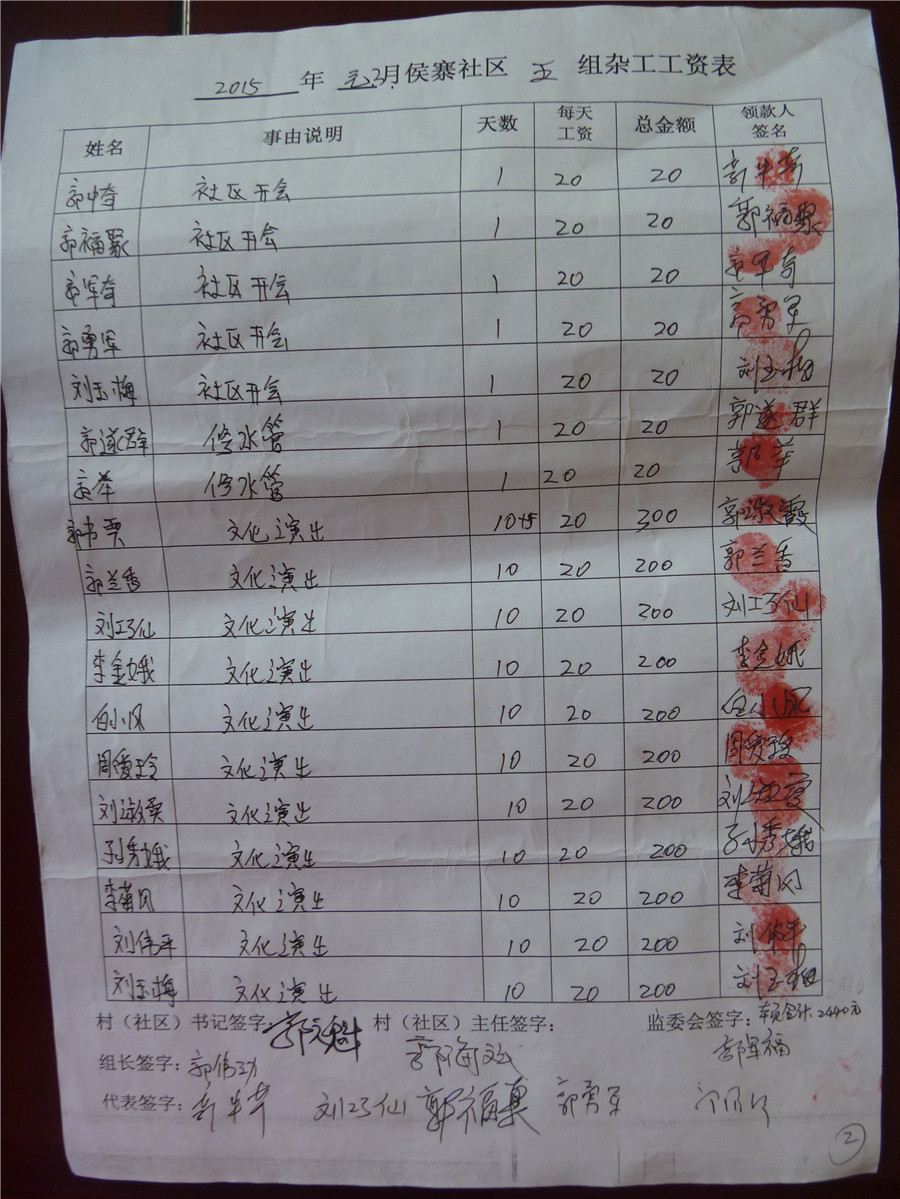 2015 年 元2月侯寨社区 五 组杂工工资表
姓名 事由说明 天数 每天工资 总金额 领款人签名
社区开会 1 20 20
郭福聚 社区开会 1 20 20 郭福聚
郭军奇 社区开会 1 20 20 郭军奇
郭勇军 社区开会 1 20 20 郭勇军
刘玉梅 社区开会 1 20 20 刘玉梅
郭遂群 修水管 1 20 20 郭遂群
修水管 1 20 20
文化演出 10+5 20 300
郭兰香 文化演出 10 20 200 郭兰香
刘巧仙 文化演出 10 20 200 刘巧仙
李金娥 文化演出 10 20 200 李金娥
白小凤 文化演出 10 20 200 白小凤
周爱玲 文化演出 10 20 200 周爱玲
文化演出 10 20 200
孙秀娥 文化演出 10 20 200 孙秀娥
李菊凤 文化演出 10 20 200 李菊凤
刘伟平 文化演出 10 20 200 刘伟平
刘玉梅 文化演出 10 20 200 刘玉梅
村（社区）书记签字 村（社区）主任签字： 监委会签字： 本页合计：2440元
组长签字： 郭伟功 郭海
代表签字： 刘巧仙 郭福聚 郭勇军
2